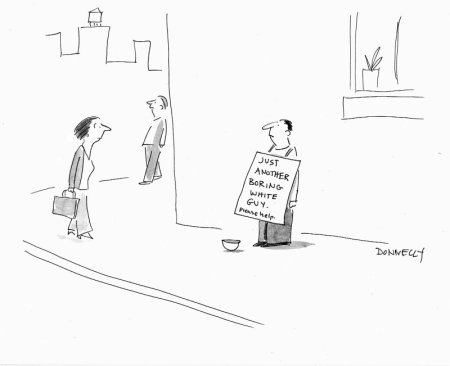 JUST
ANOTHER
BORING
WHITE
GUY.
Please help.
DONNELLY